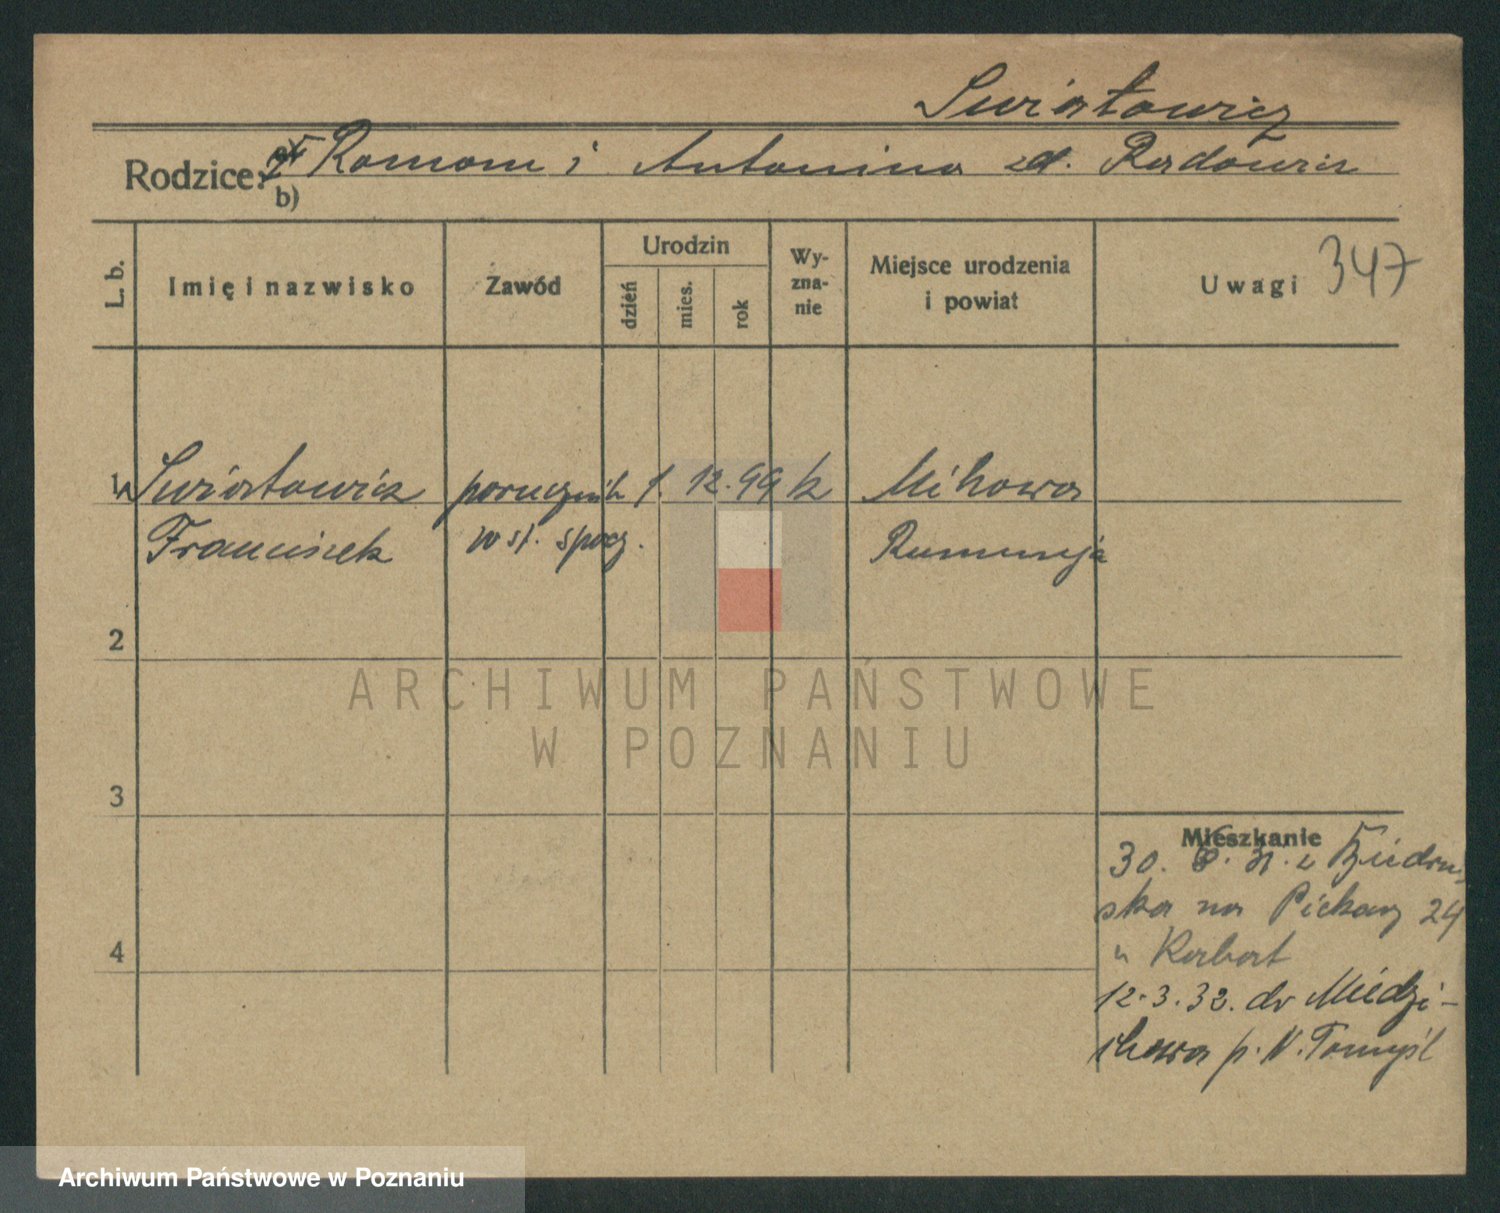 Swiatowicz
Rodzice: a) Roman i Antonina zd. Radowicz
b)
L. b.
Imię i nazwisko
Zawód
Urodzin
dzień
mies.
rok
Wy-
zna-
nie
Miejsce urodzenia
i powiat
Uwagi 347
1 Swiatowicz porucznik 1. 12. 99 k Mihowa
Franciszek w st. spocz. Rumunja
2
3
4
Mieszkanie
30. z Biedru-
ska na Piekary 24
u Rabat
12.3.32. do Miedzi-
chowa p. N. Tomyśl
ARCHIWUM PAŃSTWOWE
W POZNANIU
Archiwum Państwowe w Poznaniu